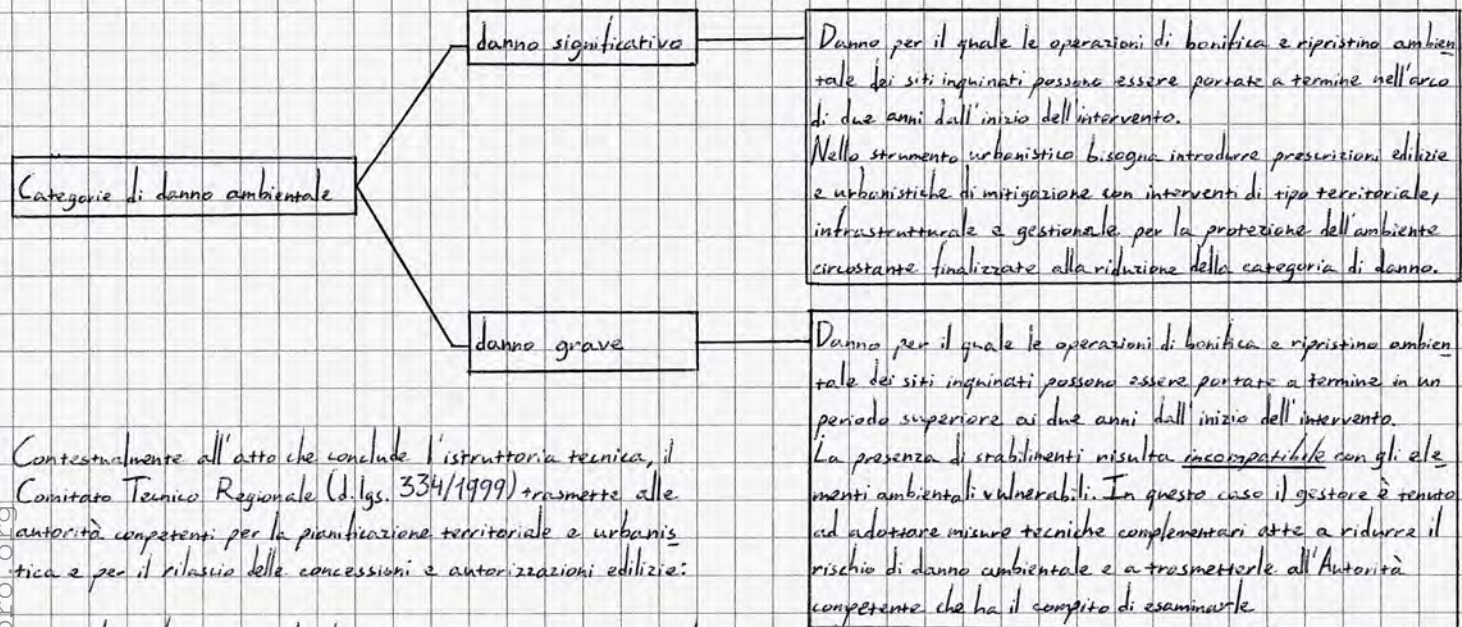 Categorie di danno ambientale
danno significativo
Danno per il quale le operazioni di bonifica e ripristino ambien
tale dei siti inquinati possono essere portate a termine nell'arco
di due anni dall'inizio dell'intervento.
Nello strumento urbanistico bisogna introdurre prescrizioni edilizie
e urbanistiche di mitigazione con interventi di tipo territoriale,
infrastrutturale e gestionale per la protezione dell'ambiente
circostante finalizzate alla riduzione della categoria di danno.
danno grave
Danno per il quale le operazioni di bonifica e ripristino ambien
tale dei siti inquinati possono essere portate a termine in un
periodo superiore ai due anni dall'inizio dell'intervento.
La presenza di stabilimenti risulta incompatibile con gli ele
menti ambientali vulnerabili. In questo caso il gestore è tenuto
ad adottare misure tecniche complementari atte a ridurre il
rischio di danno ambientale e a trasmetterle all'Autorità
competente che ha il compito di esaminarle
Contestualmente all'atto che conclude l'istruttoria tecnica, il
Comitato Tecnico Regionale (d.lgs. 334/1999) trasmette alle
autorità competenti per la pianificazione territoriale e urbanis
tica e per il rilascio delle concessioni e autorizzazioni edilizie: